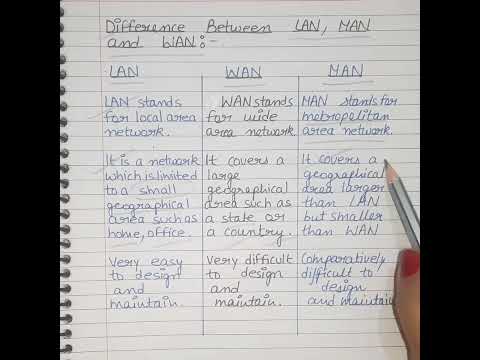 Difference Between LAN, MAN
and WAN:-
LAN
LAN stands
for local area
network.
It is a network
which is limited
to a small
geographical
area such as
home, office.
Very easy
to design
and
maintain.
WAN
WAN stands
for wide
area network
It covers a
large
geographical
area such as
a state or
a country.
Very difficult
to design
and
maintain.
MAN
MAN stands for
metropolitan
area network.
It covers a
geographical
area larger
than LAN
but smaller
than WAN
Comparatively
difficult to
design
and maintain